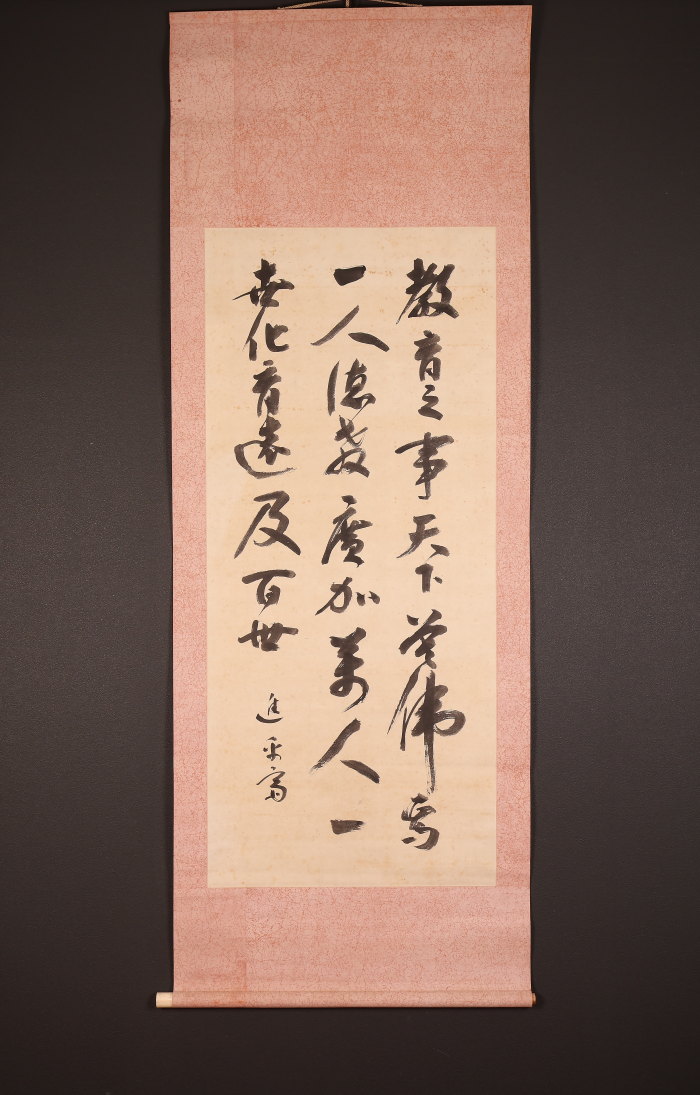 教育之事天下莫偉焉
一人德教廣加萬人一
世化育遠及百世
進乎斎